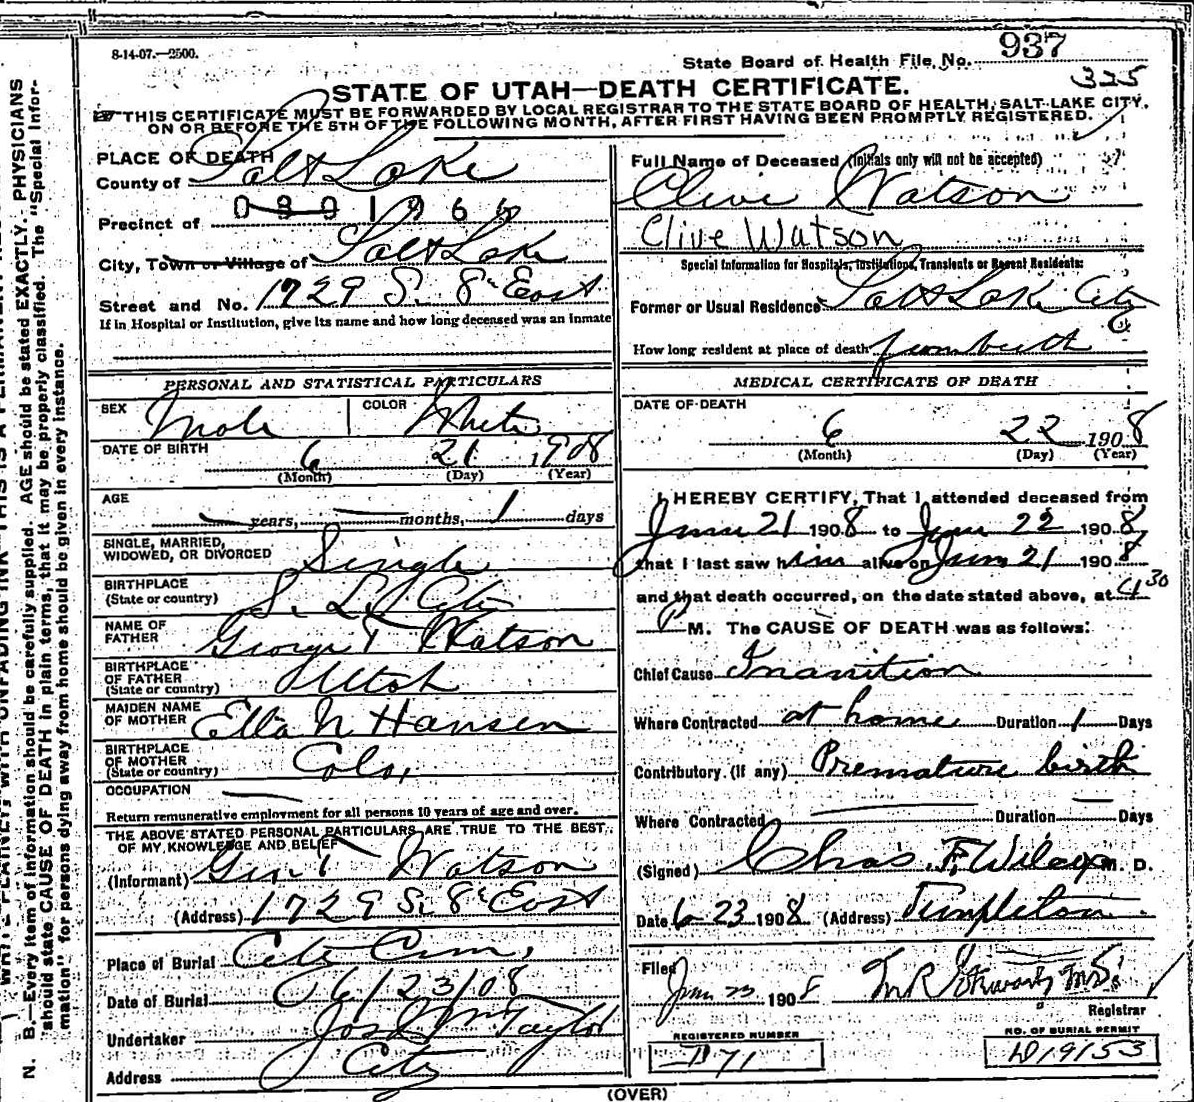 8-14-07.—2500.
State Board of Health File No. 937
325
STATE OF UTAH—DEATH CERTIFICATE.
THIS CERTIFICATE MUST BE FORWARDED BY LOCAL REGISTRAR TO THE STATE BOARD OF HEALTH, SALT LAKE CITY,
ON OR BEFORE THE 5TH OF THE FOLLOWING MONTH, AFTER FIRST HAVING BEEN PROMPTLY REGISTERED.
PLACE OF DEATH
County of Salt Lake
Precinct of
City, Town or Village of Salt Lake
Street and No. 1729 S. 8th East
If in Hospital or Institution, give its name and how long deceased was an inmate
Full Name of Deceased (Initials only will not be accepted)
Clive Watson
Clive Watson
Special Information for Hospitals, Institutions, Transients or Recent Residents:
Former or Usual Residence Salt Lake City
How long resident at place of death from birth
PERSONAL AND STATISTICAL PARTICULARS
SEX Male COLOR White
DATE OF BIRTH 6 21 1908
(Month) (Day) (Year)
AGE
— years, — months, 1 days
SINGLE, MARRIED,
WIDOWED, OR DIVORCED Single
BIRTHPLACE
(State or country) S. L. City
NAME OF
FATHER George T Watson
BIRTHPLACE
OF FATHER
(State or country) Utah
MAIDEN NAME
OF MOTHER Ella N Hansen
BIRTHPLACE
OF MOTHER
(State or country) Colo,
OCCUPATION —
Return remunerative employment for all persons 10 years of age and over.
THE ABOVE STATED PERSONAL PARTICULARS ARE TRUE TO THE BEST
OF MY KNOWLEDGE AND BELIEF
(Informant) Geo. T Watson
(Address) 1729 S. 8th East
Place of Burial City Cem,
Date of Burial 6/23/08
Undertaker Taylor
Address City
MEDICAL CERTIFICATE OF DEATH
DATE OF DEATH
6 22 1908
(Month) (Day) (Year)
I HEREBY CERTIFY, That I attended deceased from
June 21 1908 to June 22 1908
that I last saw him alive on June 21 1908
and that death occurred, on the date stated above, at 4 30
P M. The CAUSE OF DEATH was as follows:
Chief Cause Inanition
Where Contracted at home Duration 1 Days
Contributory (If any) Premature birth
Where Contracted — Duration — Days
(Signed) Chas. F. Wilcox M. D.
Date 6 23 1908 (Address) Templeton
Filed June 23 1908 M.D.
Registrar
REGISTERED NUMBER
NO. OF BURIAL PERMIT
D 19153
(OVER)
N. B.—Every item of information should be carefully supplied. AGE should be stated EXACTLY. PHYSICIANS
should state CAUSE OF DEATH in plain terms, that it may be properly classified. The "Special Infor-
mation" for persons dying away from home should be given in every instance.